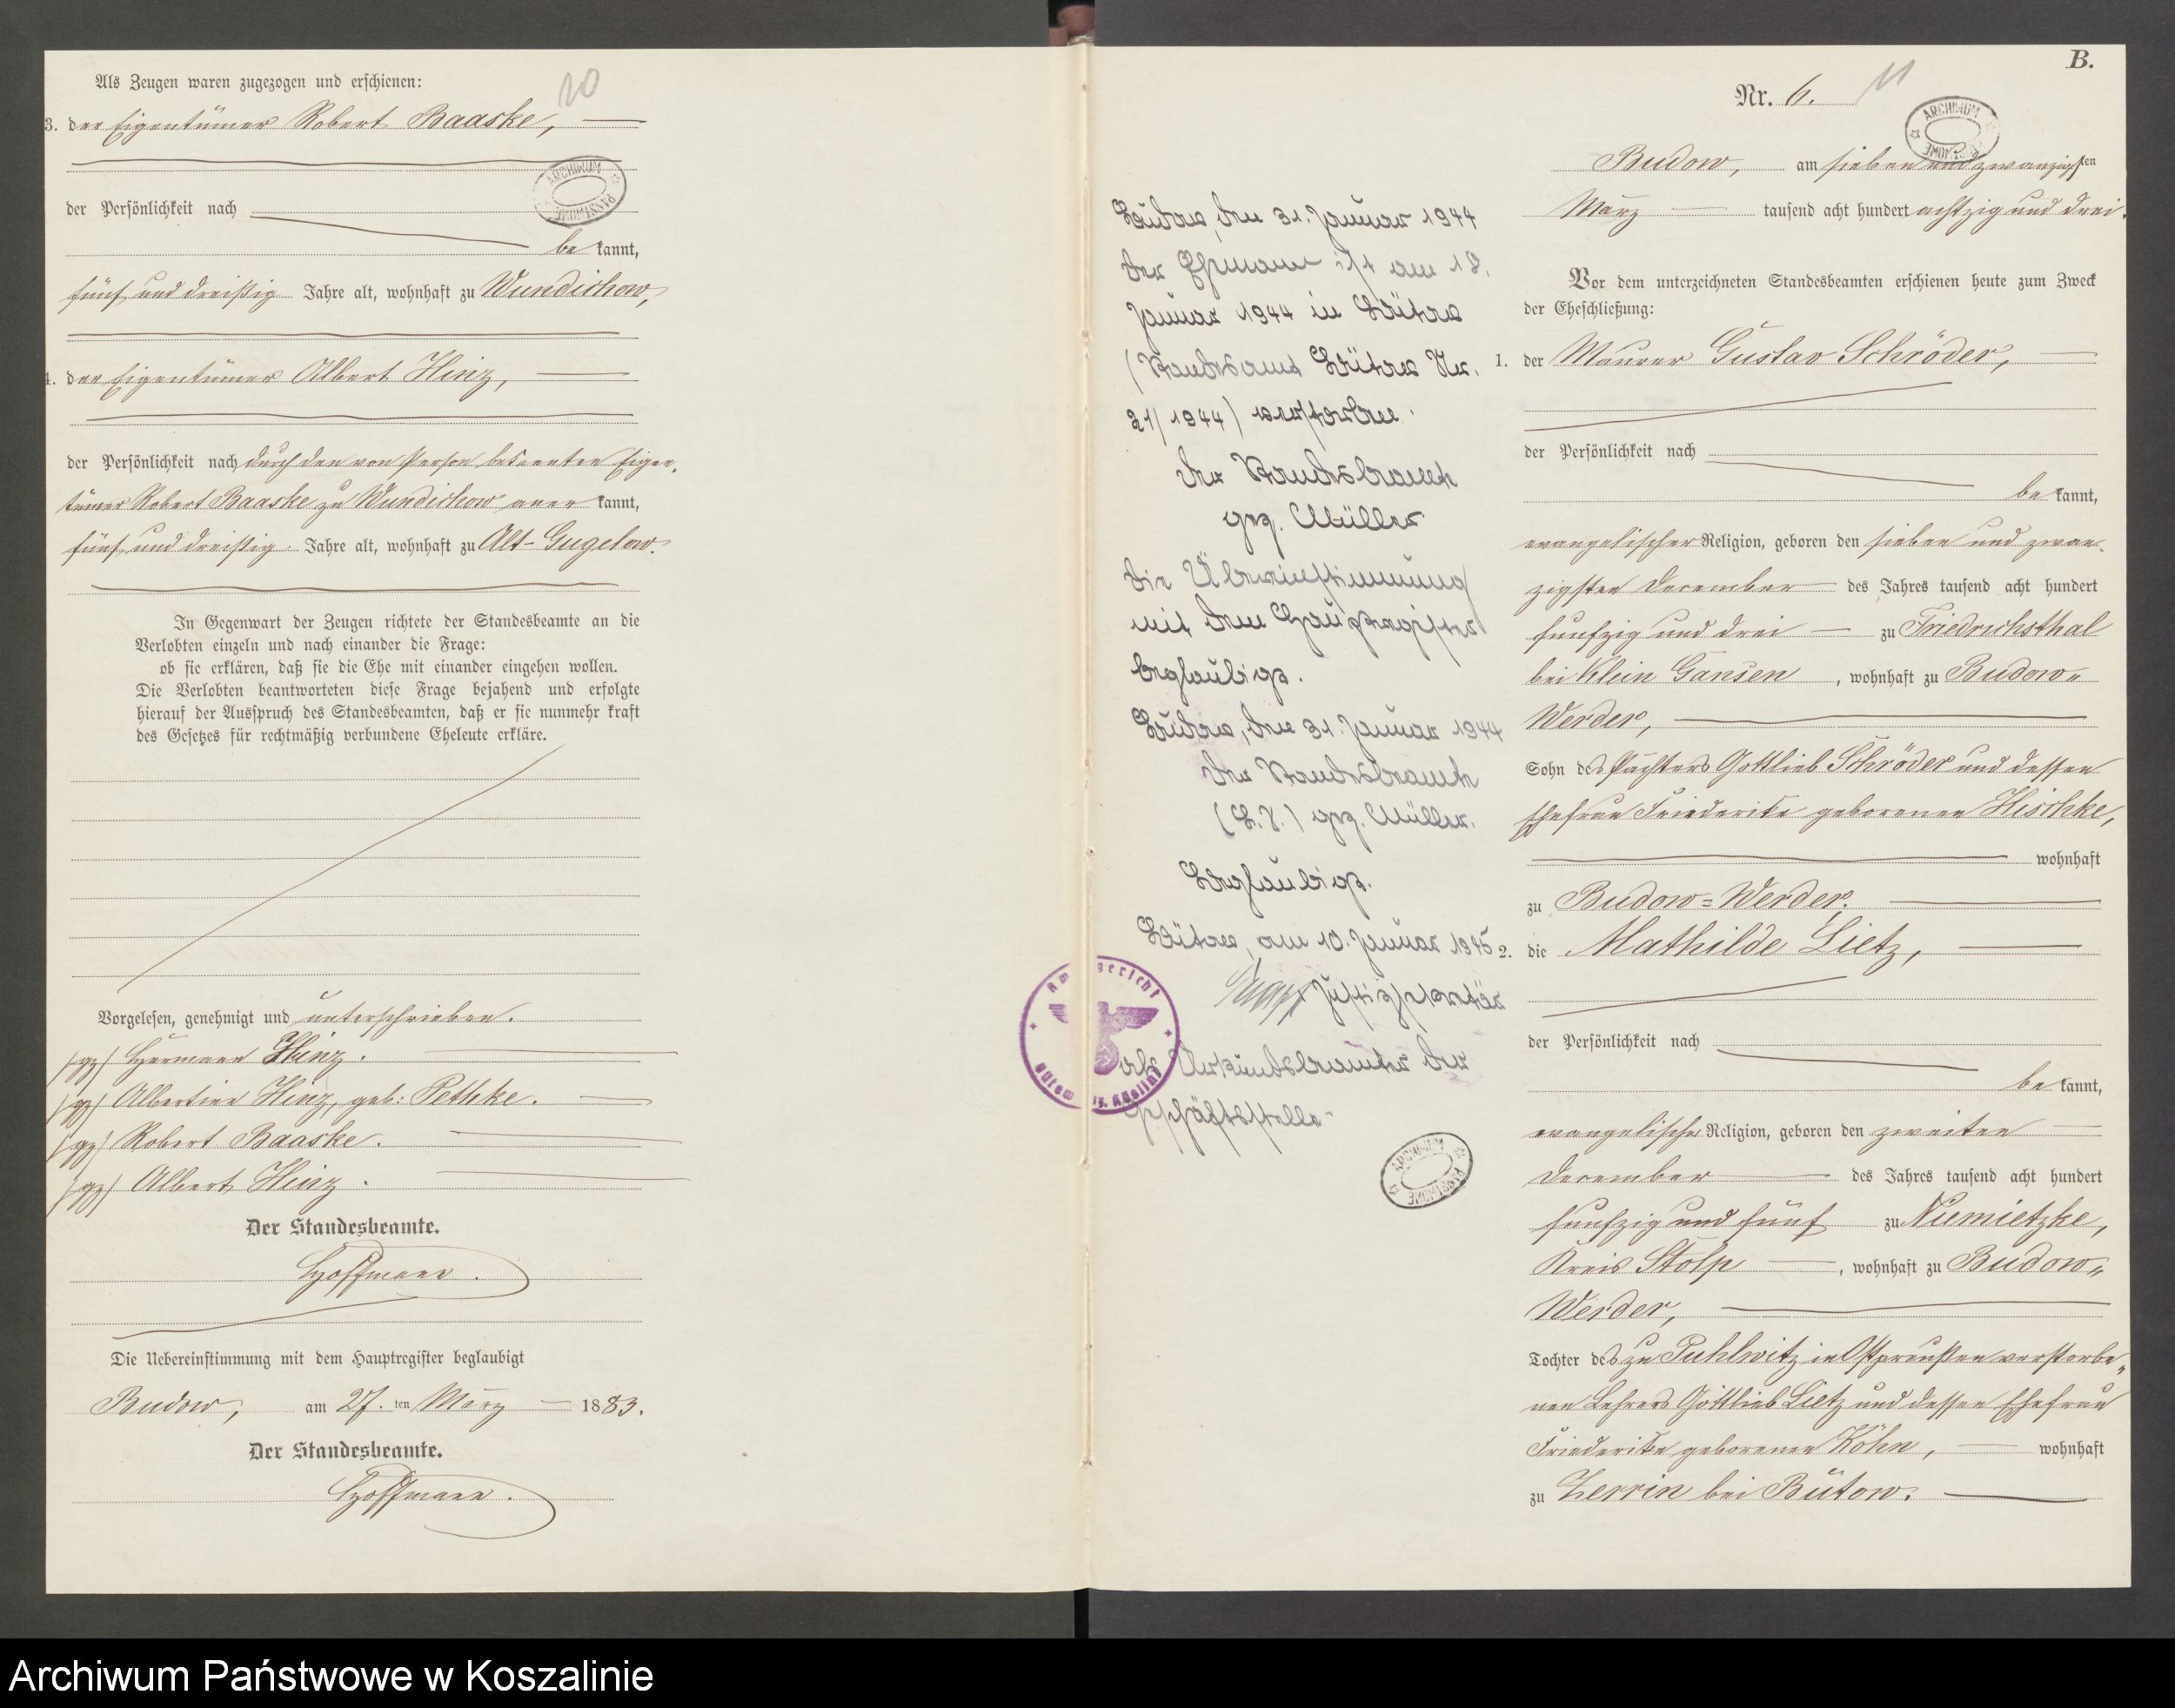 Als Zeugen waren zugezogen und erschienen:
20
3. der Eigentümer Robert Baaske,
ARCHIWUM PAŃSTWOWE
der Persönlichkeit nach
be kannt,
fünf und dreißig Jahre alt, wohnhaft zu Wundichow,
4. der Eigentümer Albert Hinz,
der Persönlichkeit nach durch den von Person bekannten Eigen-
tümer Robert Baaske zu Wundichow aner kannt,
fünf und dreißig Jahre alt, wohnhaft zu Alt-Gugelow.
In Gegenwart der Zeugen richtete der Standesbeamte an die
Verlobten einzeln und nach einander die Frage:
ob sie erklären, daß sie die Ehe mit einander eingehen wollen.
Die Verlobten beantworteten diese Frage bejahend und erfolgte
hierauf der Ausspruch des Standesbeamten, daß er sie nunmehr kraft
des Gesetzes für rechtmäßig verbundene Eheleute erkläre.
Vorgelesen, genehmigt und unterschrieben.
/gz/ Hermann Hinz.
/gz/ Albertine Hinz, geb: Pethke.
/gz/ Robert Baaske.
/gz/ Albert Hinz.
Der Standesbeamte.
Hoffmann.
Die Uebereinstimmung mit dem Hauptregister beglaubigt
Budow, am 27. ten März 1883.
Der Standesbeamte.
Hoffmann.
Bütow, den 31. Januar 1944
Der Ehemann ist am 18.
Januar 1944 in Bütow
(Standesamt Bütow Nr.
21/1944) verstorben.
Der Standesbeamte
gez. Müller
Die Übereinstimmung
mit dem Hauptregister
beglaubigt.
Bütow, den 31. Januar 1944
Der Standesbeamte
(L.S.) gez. Müller.
Beglaubigt.
Bütow, am 10. Januar 1945
Justizsekretär
als Urkundsbeamter der
Geschäftsstelle
Amtsgericht
Bütow Bz. Köslin
ARCHIWUM PAŃSTWOWE
B.
Nr. 6.
11
ARCHIWUM PAŃSTWOWE
Budow, am sieben und zwanzigsten
März tausend acht hundert achtzig und drei.
Vor dem unterzeichneten Standesbeamten erschienen heute zum Zweck
der Eheschließung:
1. der Maurer Gustav Schröder,
der Persönlichkeit nach
be kannt,
evangelischer Religion, geboren den sieben und zwan-
zigsten December des Jahres tausend acht hundert
funfzig und drei zu Friedrichsthal
bei Klein Gansen, wohnhaft zu Budow-
Werder,
Sohn des Pächters Gottlieb Schröder und dessen
Ehefrau Friederike geborenen Hischke,
wohnhaft
zu Budow=Werder.
2. die Mathilde Lietz,
der Persönlichkeit nach
be kannt,
evangelischer Religion, geboren den zweiten
December des Jahres tausend acht hundert
funfzig und fünf zu Niemietzke,
Kreis Stolp, wohnhaft zu Budow-
Werder,
Tochter des zu Puhlwitz in Ostpreußen verstorbe-
nen Lehrers Gottlieb Lietz und dessen Ehefrau
Friederike geborenen Köhn, wohnhaft
zu Zerrin bei Bütow.
Archiwum Państwowe w Koszalinie